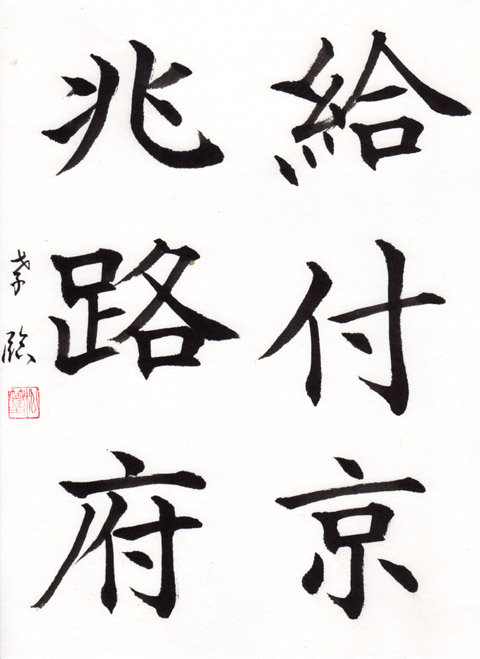 給付京
兆路府
臨